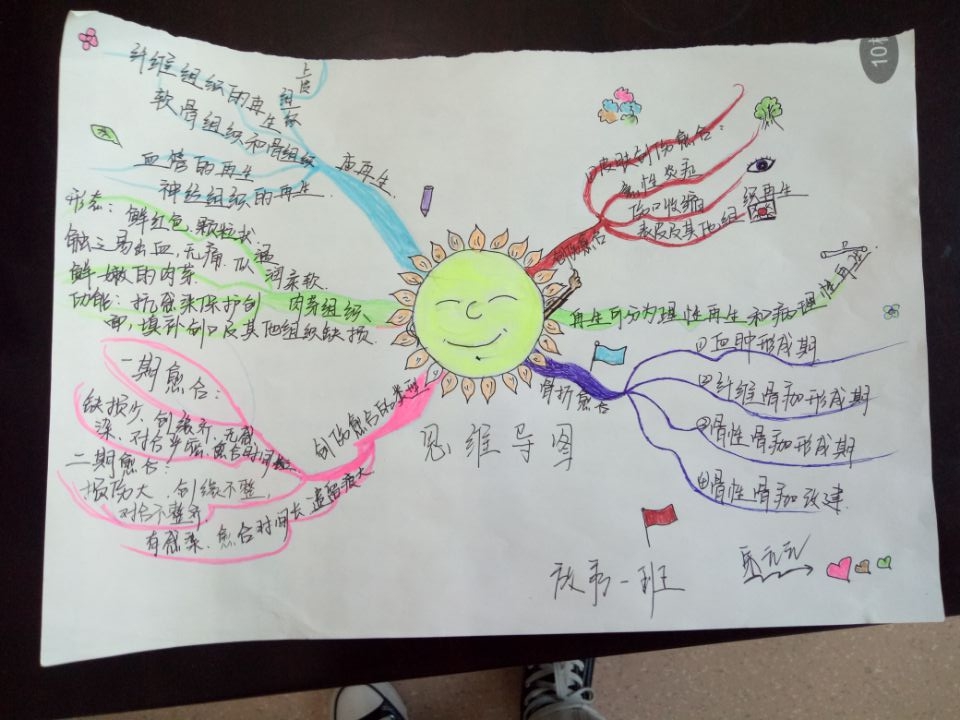 纤维组织的再生
上皮组织
软骨组织和骨组织
血管的再生
神经组织的再生
再生
形态：鲜红色，颗粒状
触之易出血，无痛
湿润柔软
鲜嫩的肉芽
功能：抗感染保护创
面，填补创口及其他组织缺损
肉芽组织
一期愈合：
缺损少、创缘齐、无感
染、对合严密，愈合时间短
二期愈合：
损伤大、创缘不整，
对合不整齐，
有感染、愈合时间长 遗留瘢大
创伤愈合的类型
创伤愈合
①皮肤创伤愈合：
急性炎症
伤口收缩
表皮及其他组织再生
再生可分为理性再生和病理性再生
骨折愈合
①血肿形成期
②纤维骨痂形成期
③骨性骨痂形成期
④骨性骨痂改建
思维导图
一班
10